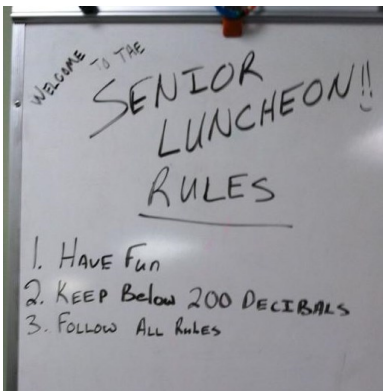 WELCOME TO THE
SENIOR
LUNCHEON!!
RULES
1. HAVE Fun
2. KEEP Below 200 DECIBALS
3. FOLLOW ALL RULES